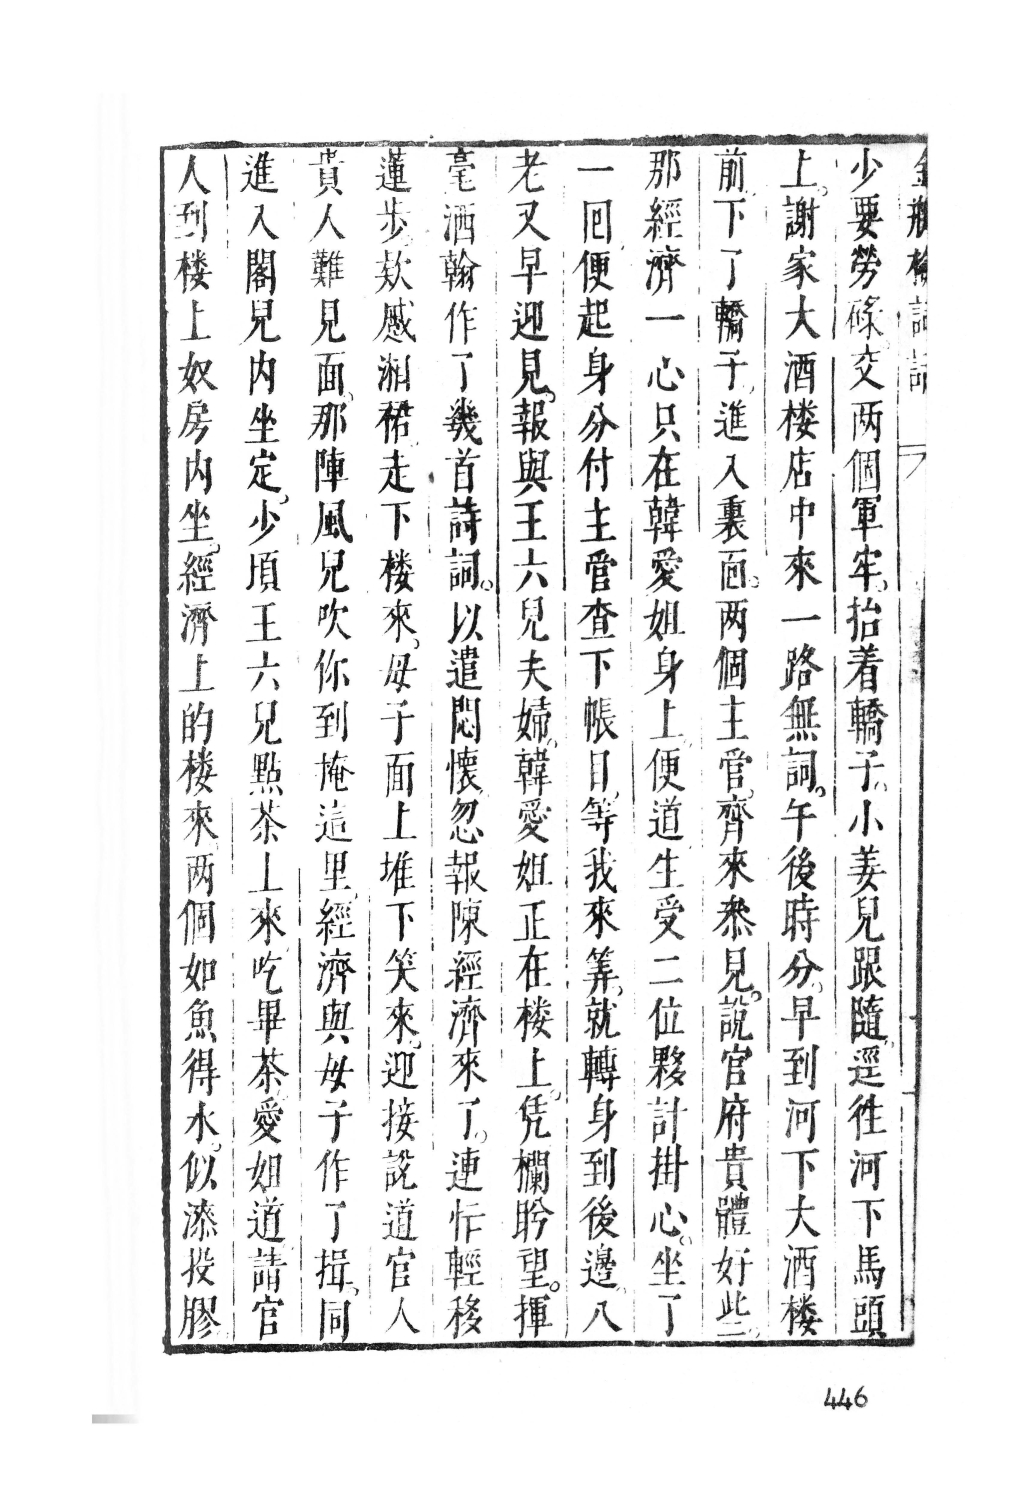 金瓶梅詞話
少要勞碌。交両個軍牢。抬着轎子。小姜兒跟隨。逕徃河下馬頭
上。謝家大酒楼店中來一路無詞。午後時分。早到河下大酒楼
前。下了轎子。進入裏面。両個主管。齊來叅見。說官府貴體好些。
那經濟一心只在韓愛姐身上。便道生受二位夥計掛心。坐了
一囘。便起身分付主管查下帳目。等我來筭。就轉身到後邊。八
老又早迎見。報與王六兒夫婦。韓愛姐正在楼上。凭欄盻望。揮
毫洒翰作了幾首詩詞。以遣悶懷。忽報陳經濟來了。連忙輕移
蓮步。欵蹙湘裙。走下楼來。母子面上堆下笑來。迎接説道官人
貴人難見面。那陣風兒吹你到俺這里。經濟與母子作了揖。同
進入閣兒内坐定。少頃王六兒點茶上來。吃畢茶。愛姐道請官
人到楼上奴房内坐。經濟上的楼來。両個如魚得水。似漆投膠
446